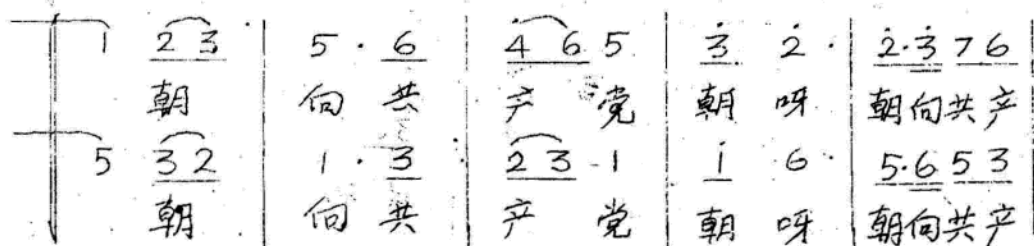 1 2 3 | 5 · 6 | 4 6 5 | 3̇ 2̇ · | 2̇·3̇ 7 6
朝 向 共 产 党 朝 呀 朝向共产
5 3 2 | 1 · 3 | 2 3 1 | 1̇ 6 · | 5·6 5 3
朝 向 共 产 党 朝 呀 朝向共产